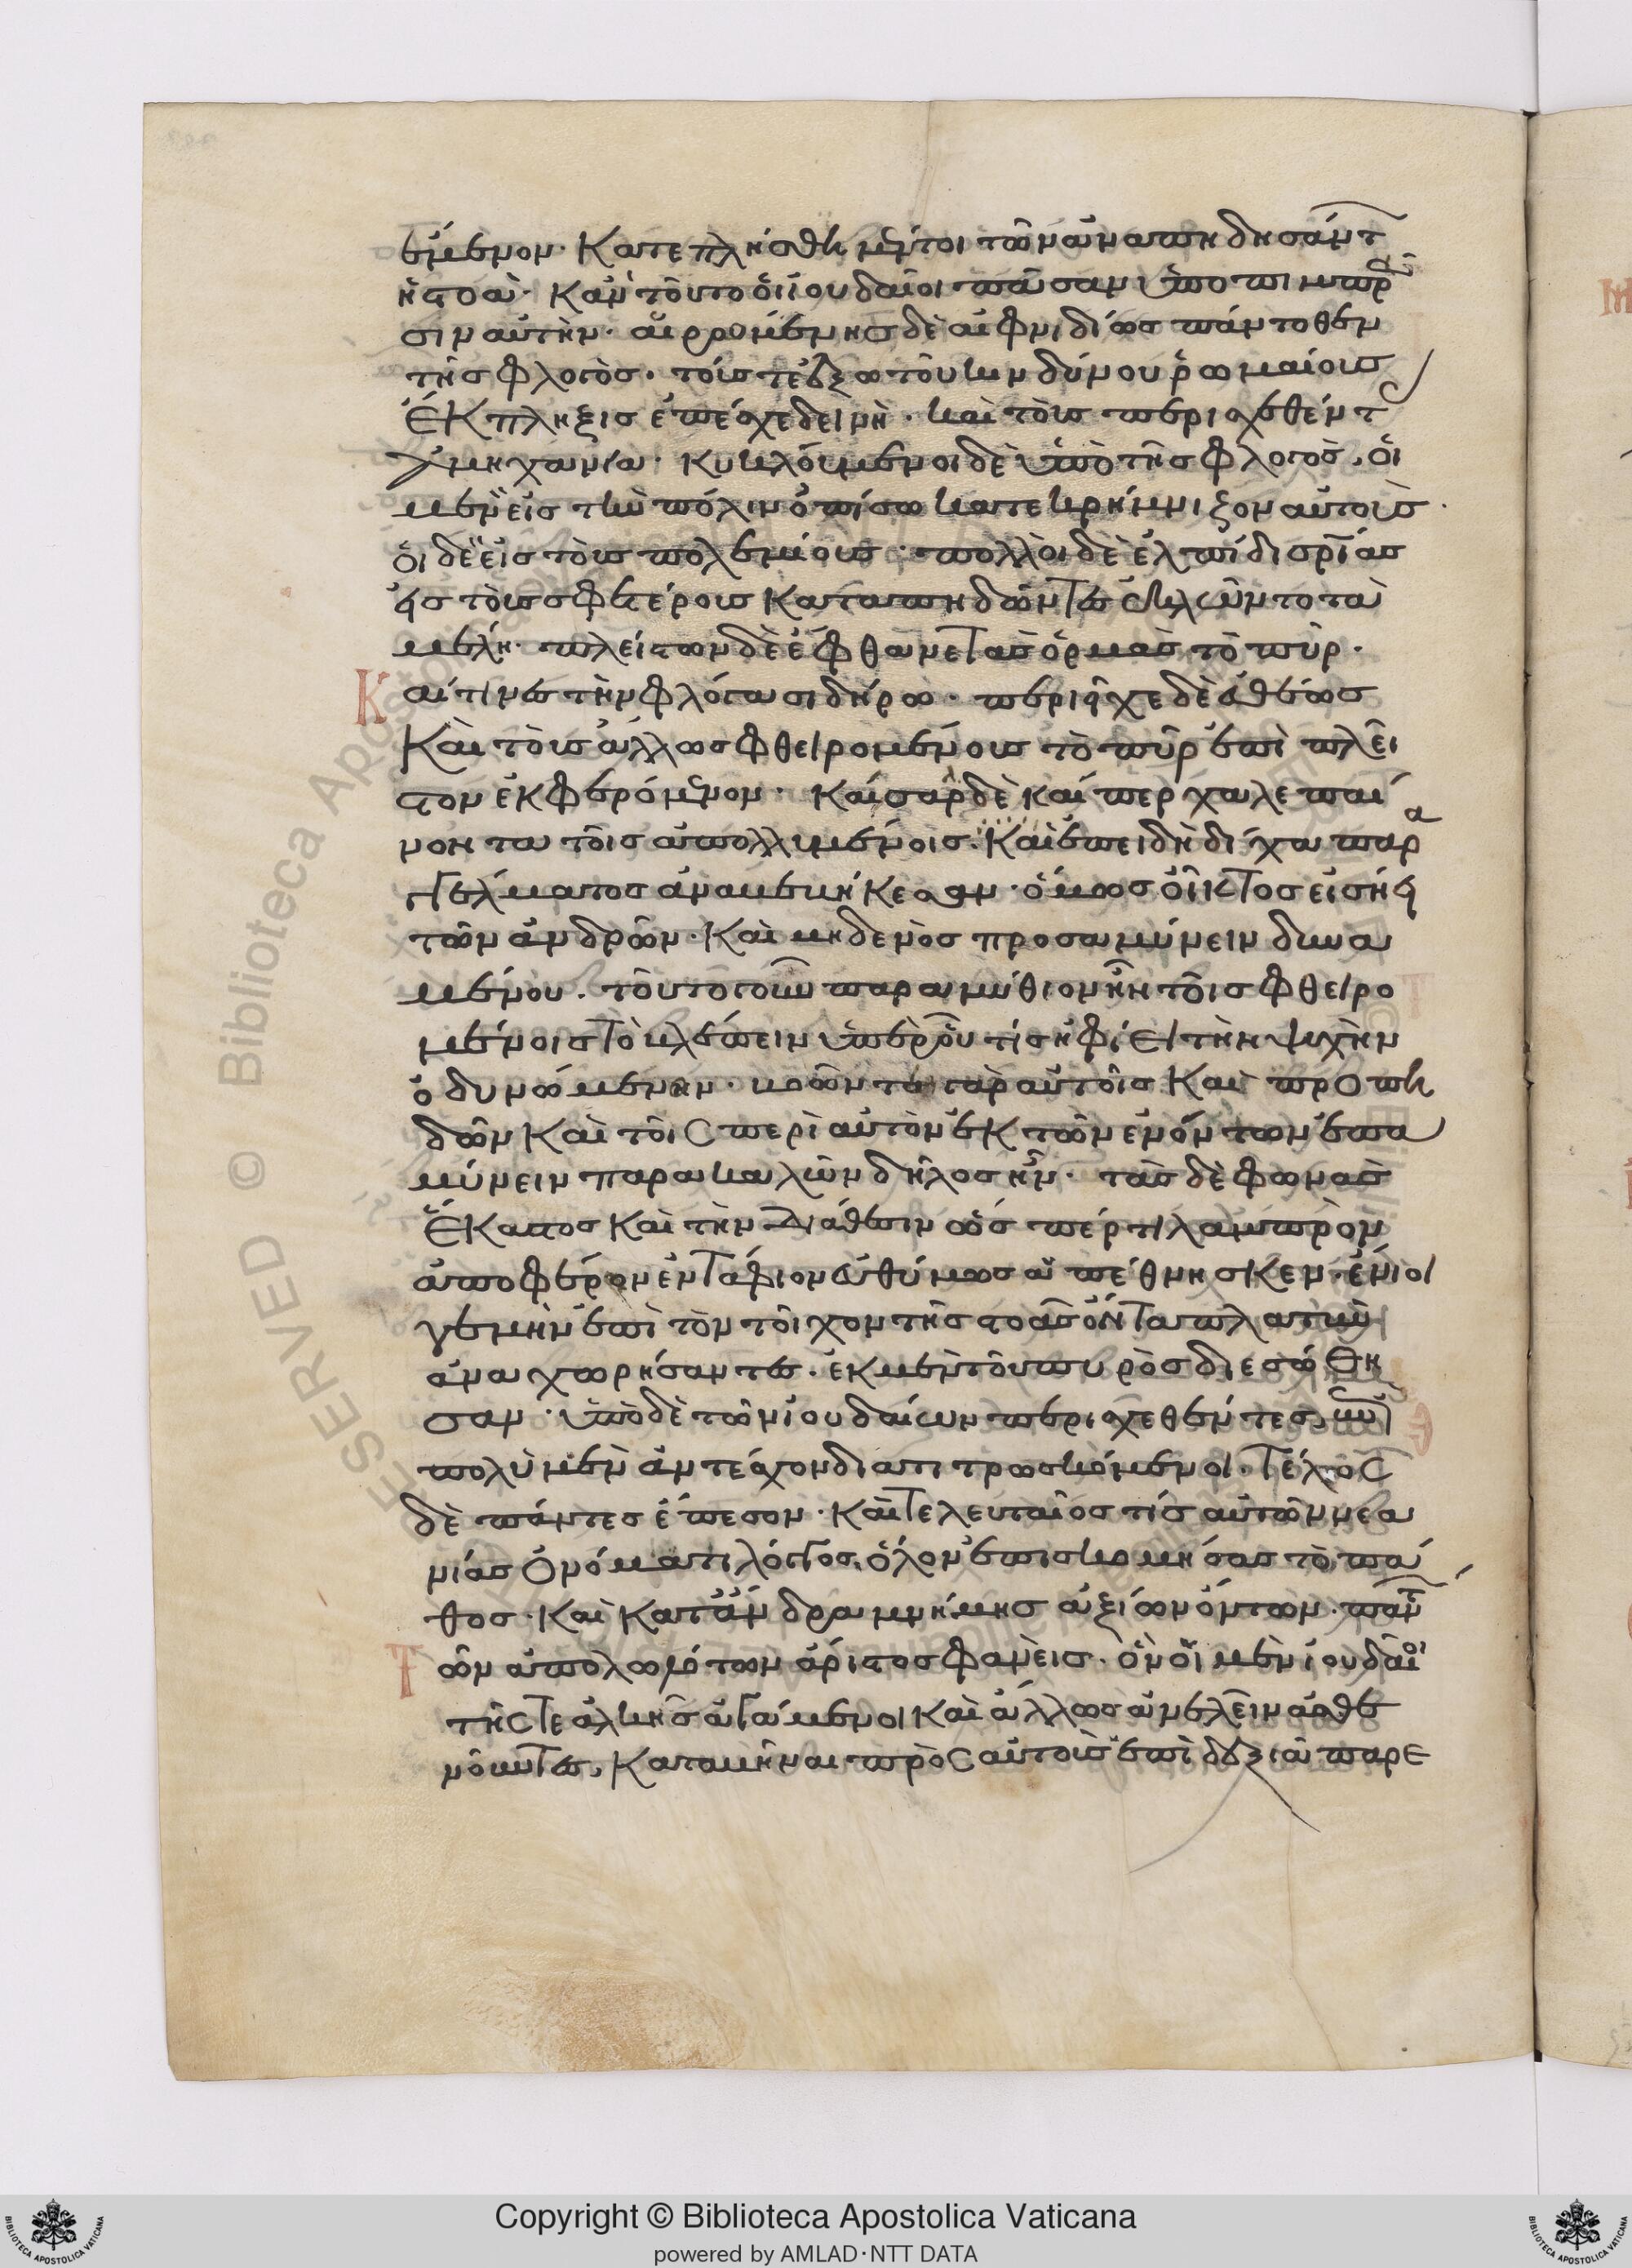 έμενον· κατεπλήσθη μέντοι τῶν ἀναπηδησάντ
ἡ στοά· κἂν τούτῳ οἱ ἰουδαῖοι πᾶσαν ὑποπιμπρᾶ
σιν αὐτήν· αἰρομένης δὲ αἰφνιδίως πάντοθεν
τῆς φλογὸς· τούς τε ἔξω τοῦ κινδύνου ῥωμαίους
ἔκπληξις ἐπέσχε δεινὴ· καὶ τοὺς περισχεθέντ
ἀμηχανία· κυκλούμενοι δὲ ὑπὸ τῆς φλογὸς, οἱ
μὲν εἰς τὴν πόλιν ὀπίσω κατεκρήμνιζον αὐτοὺς
οἱ δὲ εἰς τοὺς πολεμίους· πολλοὶ δὲ ἐλπίδι σωτηρίας
εἰς τοὺς σφετέρους καταπηδῶντες ἐκλῶντο τὰ
μέλη· πλείστων δὲ ἔφθανε τὰς ὁρμὰς τὸ πῦρ·
καί τινες τὴν φλόγα σιδήρῳ· περιεῖχε δὲ εὐθέως
καὶ τοὺς ἄλλως φθειρομένους τὸ πῦρ ἐπὶ πλεῖ
στον ἐκφερόμενον· καίσαρ δὲ καίπερ χαλεπαί
νοντα τοῖς ἀπολλυμένοις· καὶ ἐπειδὴ δίχα παρ
αγγέλματος ἀναβεβήκεσαν· ὅμως οἶκτος εἰσήει
τῶν ἀνδρῶν· καὶ μηδενὸς προσαμύνειν δυνα
μένου· τοῦτο γοῦν παραμύθιον ἦν τοῖς φθειρο
μένοις τὸ βλέπειν ὑπὲρ οὗ τίς ἠφίει τὴν ψυχὴν
ὀδυνώμενον· βοῶν τε γὰρ αὐτοῖς καὶ προπη
δῶν καὶ τοῖς περὶ αὐτὸν ἐκ τῶν ἐνόντων ἐπα
μύνειν παρακαλῶν δῆλος ἦν· τὰς δὲ φωνὰς
ἕκαστος καὶ τὴν διάθεσιν ὥσπέρ τι λαμπρὸν
ἀποφέρων ἐντάφιον εὐθύμως ἀπέθνησκεν· ἔνιοί
γε μὴν ἐπὶ τὸν τοῖχον τῆς στοᾶς ὄντα πλατὺν
ἀναχωρήσαντες· ἐκ μὲν τοῦ πυρὸς διεσώθη
σαν· ὑπὸ δὲ τῶν ἰουδαίων περισχεθέντες, ἐπὶ
πολὺ μὲν ἀντέσχον διατιτρωσκόμενοι· τέλος
δὲ πάντες ἔπεσον· καὶ τελευταῖός τις αὐτῶν νεα
νίας ὀνόματι λόγγος, ὅλον ἐπικοσμήσας τὸ πά
θος· καὶ κατ' ἄνδρα μνήμης ἀξίων ὄντων· πάντ
ῶν ἀπολωλότων ἄριστος φανεὶς· ὃν οἱ μὲν ἰουδαῖοι
τῆς τε ἀλκῆς ἀγάμενοι καὶ ἄλλως ἀνελεῖν ἀσθε
νοῦντες, καταβῆναι πρὸς αὐτοὺς ἐπὶ δεξιᾷ παρε